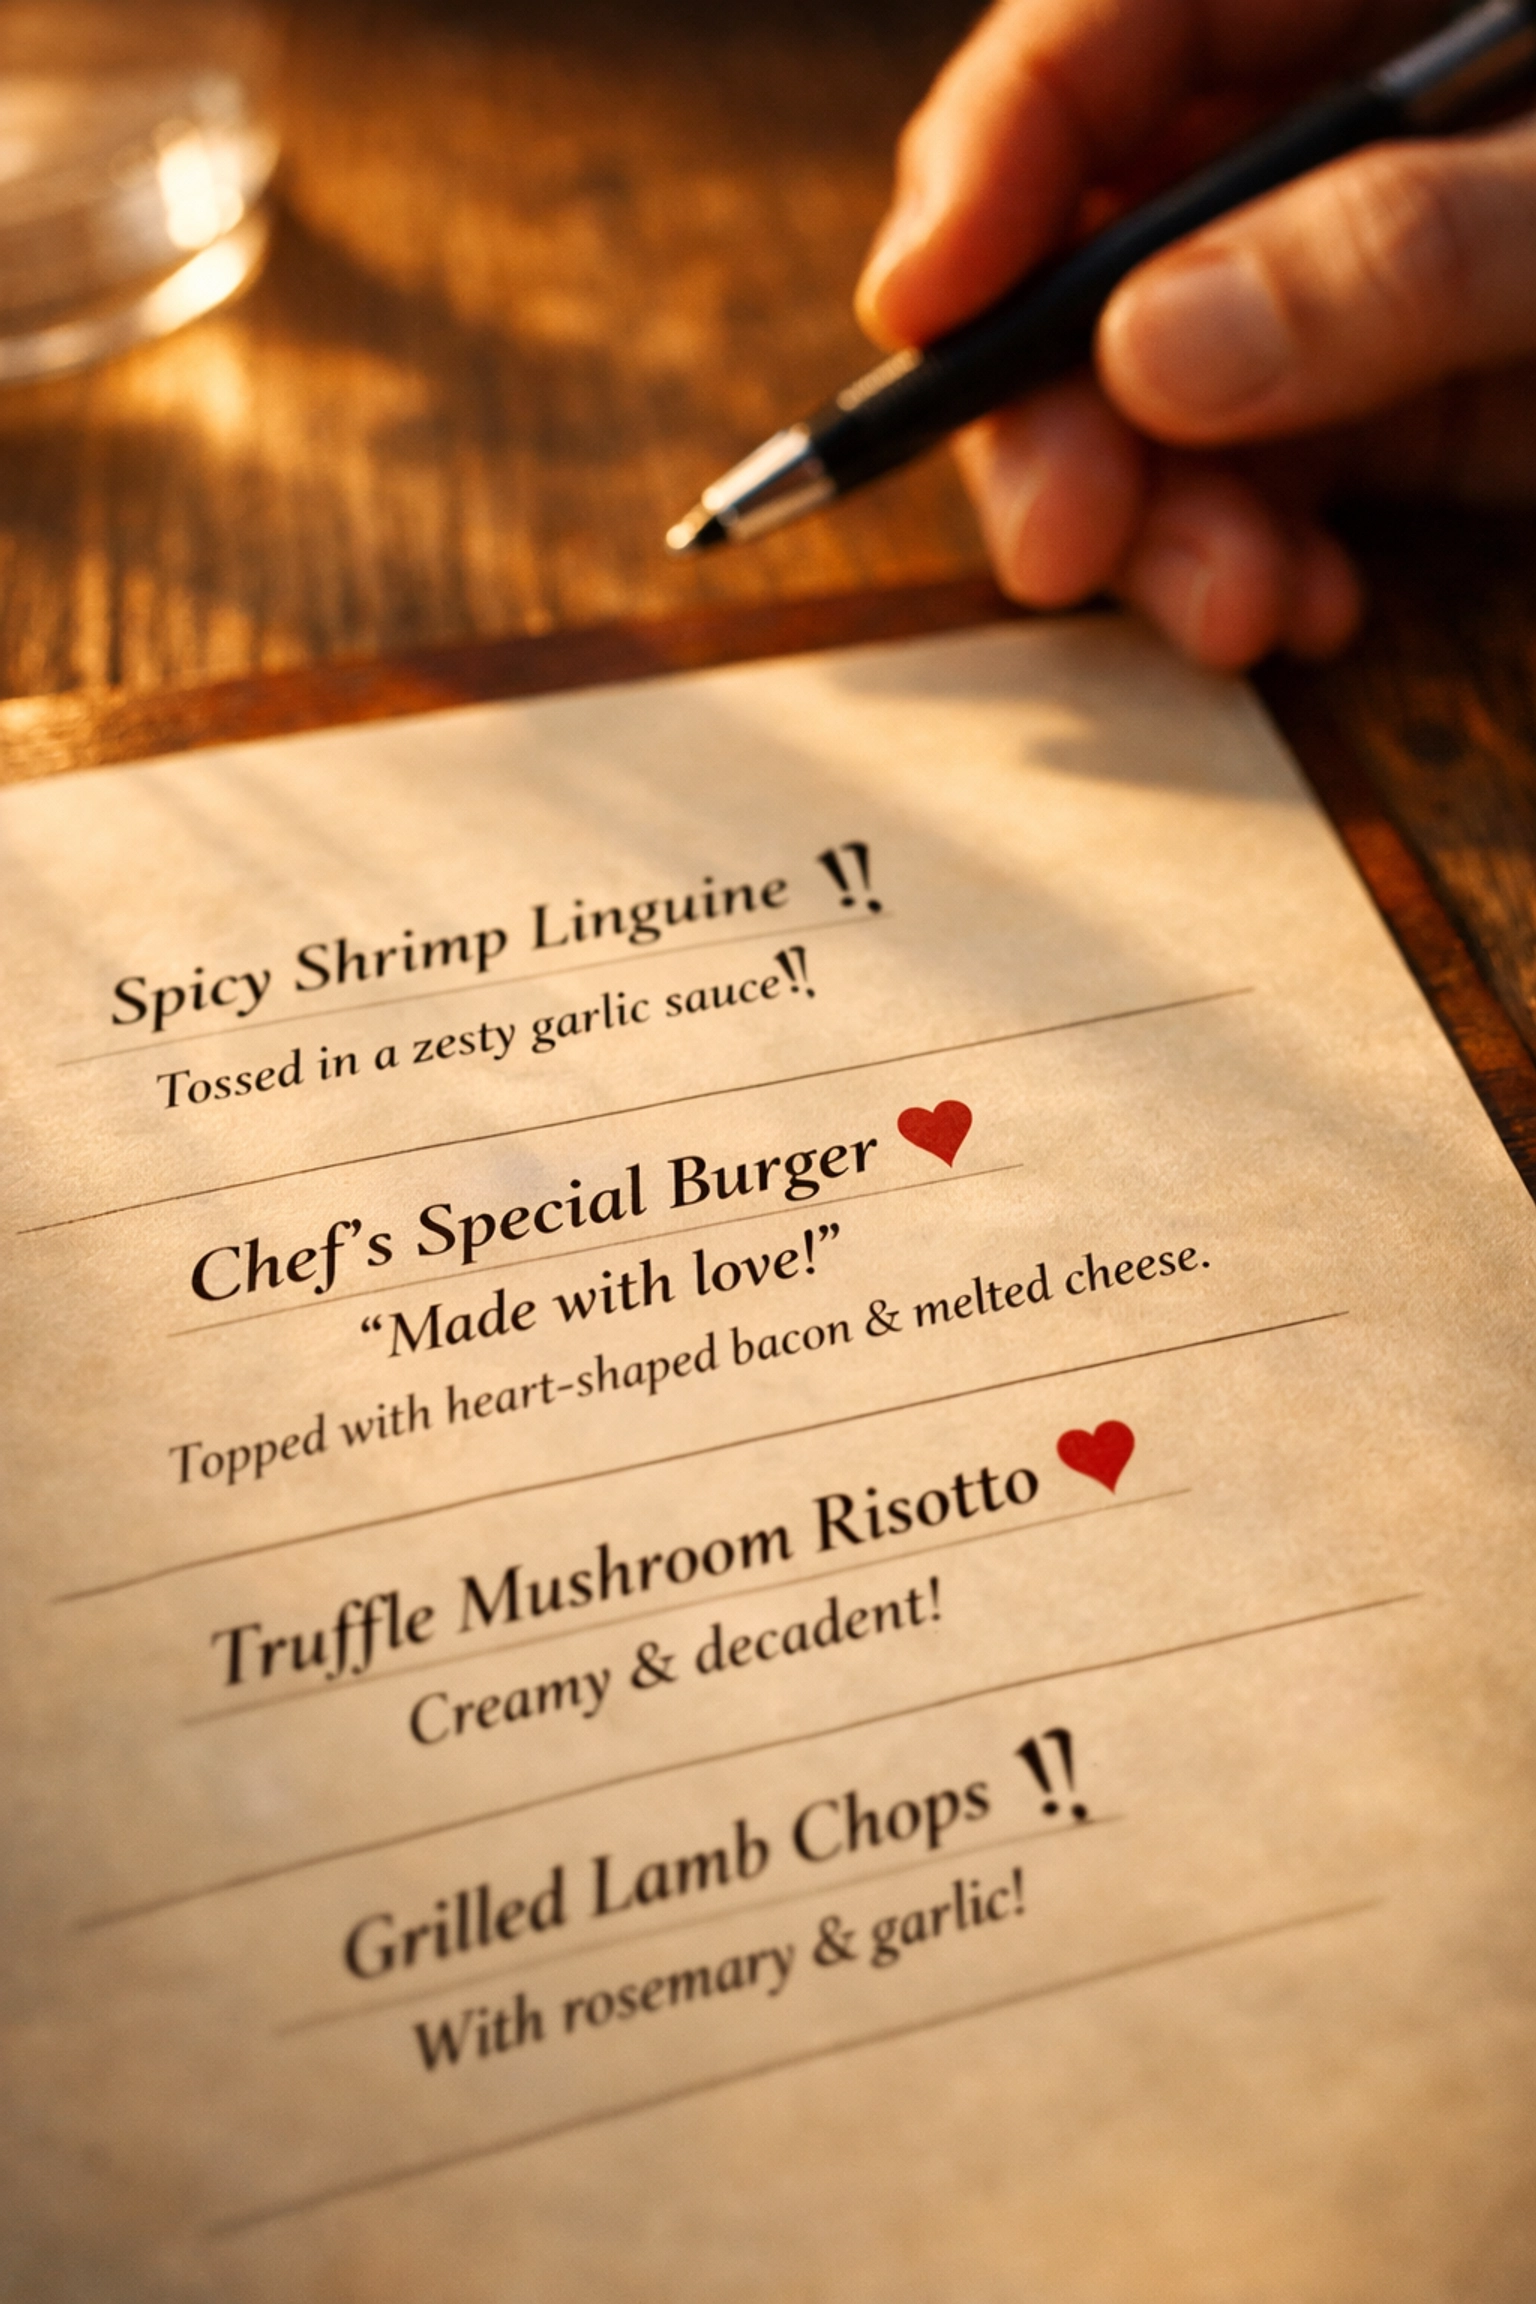 Spicy Shrimp Linguine ‼
Tossed in a zesty garlic sauce‼
Chef’s Special Burger ♥
“Made with love!”
Topped with heart-shaped bacon & melted cheese.
Truffle Mushroom Risotto ♥
Creamy & decadent!
Grilled Lamb Chops ‼
With rosemary & garlic!